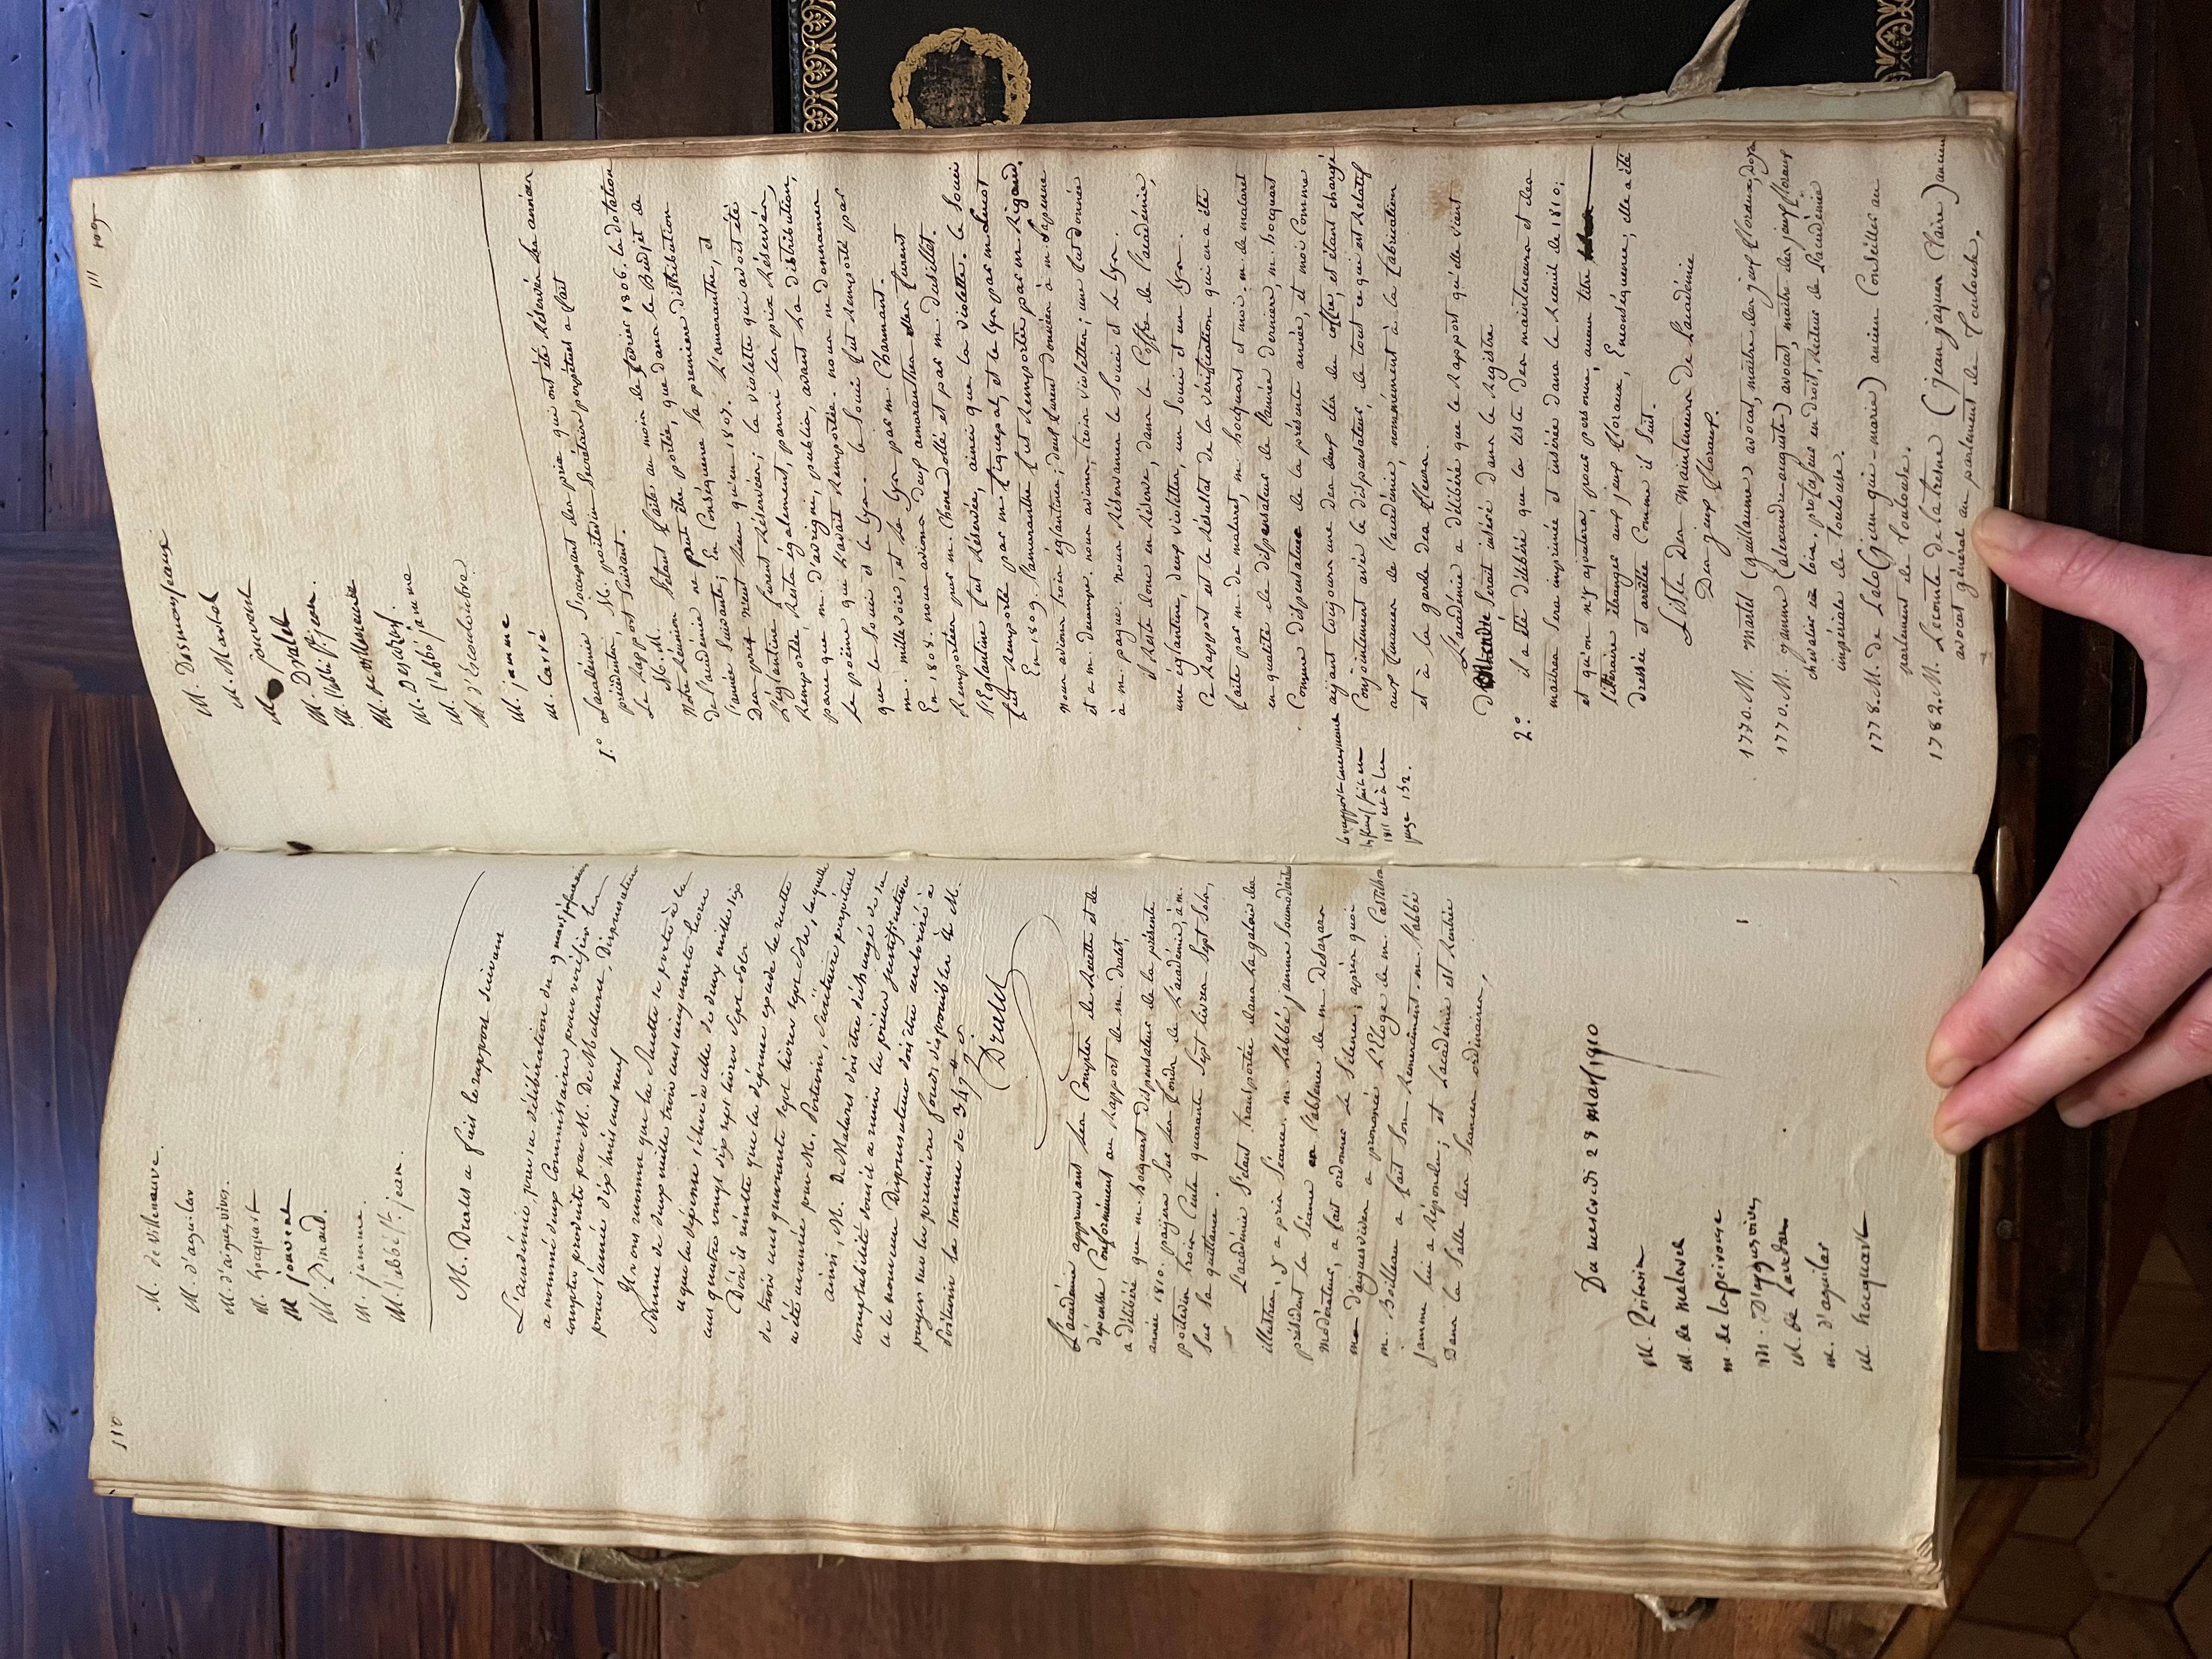 110
M. de Villeneuve.
M. d'aguilar
M. d'aiguesvives.
M. hocquart
M jouvent
M. Pinaud.
M. jamme.
M. l'abbé St. jean.
M. Dralet a fait le rapport suivant
L'académie, par sa délibération du 9 mars
a nommé deux Commissaires pour vérifier les
comptes produits par M. De Malaret, Dispensateur
pour l'année dix huit cent neuf
Il en résulte que la Recette se porte à la
Somme de deux mille trois cent cinquante livres
et que la dépense s'élève à celle de deux mille six
cent quatre vingt dix sept livres sept sols
D'où il résulte que la dépense excède la recette
de trois cent quarante sept livres sept sols, laquelle
a été avancée par M. Poitevin, Secrétaire perpétuel
ainsi, M. De Malaret doit être déchargé de sa
comptabilité dont il a remis les pièces justificatives
et le nouveau Dispensateur doit être authorisé à
payer sur les premiers fonds disponibles à M.
Poitevin la somme de 347 lt 7 s
Dralet
L'académie approuvant les Comptes de Recette et de
dépense Conformément au Rapport de M. Dralet,
a délibéré que M. hocquart dispensateur de la présente
année 1810. payera sur les fonds de L'académie, à M.
poitevin trois Cents quarante Sept livres Sept Sols,
sur sa quittance.
L'académie S'étant transportée dans la galerie des
illustres, y a pris Séance. M. L'abbé jamme Soumodérateur
président la Séance en l'absence de M. Desazars
modérateur, a fait ordonner le Silence; après quoi
M. d'aiguesvives a prononcé L'Eloge de M. Castilhon
M. Boilleau a fait Son Remerciment. M. L'abbé
jamme lui a Répondu; et L'académie est Rentrée
Dans la Salle des Séances ordinaires.
Du mercredi 28 mars 1810
M. Poitevin
M. de malaret
M. de lapeirouse
M. D'ayguesvives
M. de Lavedan
M. d'aguilar
M. hocquart
111 109
M. Desmousseaux
M. Martel
M. jouvent
M. Dralet
M. l'abbé St. jean.
M. de Villeneuve
M. Descazeaux.
M. l'abbé jamme
M. d'Escouloubre
M. jamme
M. Carré
1.° L'académie S'occupant des prix qui ont été Réservés les années
précédentes, M. poitevin Secrétaire perpétuel a fait
Le Rapport Suivant.
M. M.
Notre Réunion S'étant faite au mois de février 1806. la dotation
de l'académie ne put être portée, que dans le Budjet de
l'année Suivante; En Conséquence la première distribution
Des prix n'eut lieu qu'en 1807. L'amaranthe, et
L'églantine furent Réservées; la violette qui avoit été
Remportée, Resta également, parmi les prix Réservés,
parce que M. d'avrigni, publia, avant la distribution,
Le poème qui L'avait Remportée. nous ne donnames
que le Souci et le Lyon. le Souci fut Remporté par
M. millevoie, et le Lyon par M. Charmant.
En 1808. nous avions deux amaranthes elles furent
Remportées par M. Chenedollé et par M. dusillet.
l'Eglantine fut Réservée, ainsi que la violette. le Souci
fut Remporté par M. tiquepal, et le Lyon par M. Lucot
En 1809. l'amaranthe fut Remportée par M. Rigaud.
nous avions trois églantines; deux furent données à M. Lapenne
et à M. decampe. nous avions trois violettes; une fut donnée
à M. pague. nous Réservames le Souci et le Lyon.
il Reste donc en Réserve, dans le Coffre de L'académie,
une églantine, deux violettes, un Souci et un Lyon.
Ce Rapport est le Résultat de la vérification qui en a été
faite par M. de malaret, M. hocquart et moi. M. de malaret
en qualité de dispensateur de l'année dernière, M. hocquart
Comme dispensateur de la présente année, et moi Comme
ayant toujours une des deux clés du coffre, et étant chargé
Conjointement avec le dispensateur, de tout ce qui est Relatif
aux finances de l'académie, nommément à la fabrication
et à la garde des fleurs.
le rapport
les fleurs fait en
1811 est à la
page 132.
L'académie a délibéré que le Rapport qu'elle vient
D'entendre Serait inséré dans le Registre
2.° il a été délibéré que la liste des mainteneurs et des
maitres sera imprimée et insérée dans le Recueil de 1810;
et qu'on n'y ajoutera, pour personne, aucun titre
littéraire Etranger aux jeux floraux; En conséquence, elle a été
dressée et arrêtée Comme il Suit.
Liste des Mainteneurs de L'académie
Des jeux floraux.
1770. M. Martel (guillaume) avocat, maitre des jeux floraux,
1770. M. jamme (alexandre-auguste) avocat, maitre des jeux floraux
chevalier ès loix, professeur en droit, Recteur de l'académie
impériale de toulouse.
1778. M. de Lalo (jean-gui-marie) ancien Conseiller au
parlement de toulouse.
1782. M. Lecomte de latresne (jean jaques Claire) ancien
avocat général au parlement de toulouse.